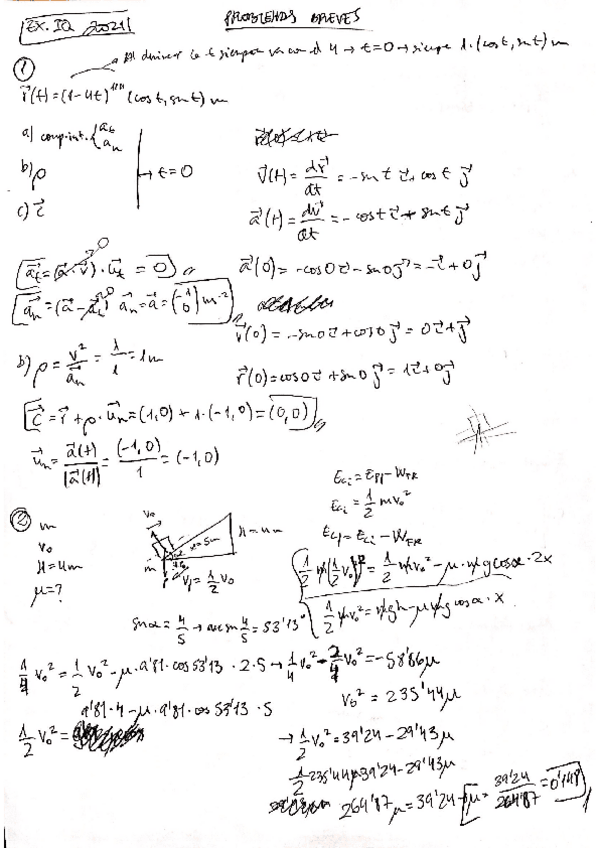 EX. IQ 2021
PROBLEMAS BREVES
①
siempre va con el 4 → t=0 → siempre 1·(cos t, sen t) m
r⃗(t) = (1-4t) (cos t, sen t) m
a) comp. int. { at
an
b) ρ
c) c⃗
→ t=0
v⃗(t) = dr⃗/dt = -sen t i⃗ + cos t j⃗
a⃗(t) = dv⃗/dt = -cos t i⃗ - sen t j⃗
a⃗t = (a⃗·v⃗)·u⃗t = 0
a⃗(0) = -cos 0 i⃗ - sen 0 j⃗ = -i⃗ + 0j⃗
a⃗n = (a⃗ - a⃗t) a⃗n = a⃗ = (-1 0) m s-2
v⃗(0) = -sen 0 i⃗ + cos 0 j⃗ = 0i⃗ + j⃗
b) ρ = v²/a⃗n = 1/1 = 1m
r⃗(0) = cos 0 i⃗ + sen 0 j⃗ = 1i⃗ + 0j⃗
c⃗ = r⃗ + ρ·u⃗n = (1,0) + 1·(-1,0) = (0,0)
u⃗n = a⃗(t)/|a⃗(t)| = (-1,0)/1 = (-1,0)
②
m
v0
H=4m
μ=?
v0
x=5m
H=4m
m
vf = 1/2 v0
Eci = Epf - WFR
Eci = 1/2 mv0²
Ecf = Eci - WFR
1/2 m(1/2 v0)² = 1/2 mv0² - μ·m g cosα·2x
1/2 mv0² = mgh - μ m g cosα·x
senα = 4/5 → arcsen 4/5 = 53'13°
1/4 v0² = 1/2 v0² - μ·9'81·cos 53'13·2·5 → 1/4 v0² - 2/4 v0² = -58'86μ
v0² = 235'44μ
9'81·4 - μ·9'81·cos 53'13·5
1/2 v0² =
→ 1/2 v0² = 39'24 - 29'43μ
1/2 235'44μ = 39'24 - 29'43μ
264'87μ = 39'24 → μ = 39'24/264'87 = 0'148